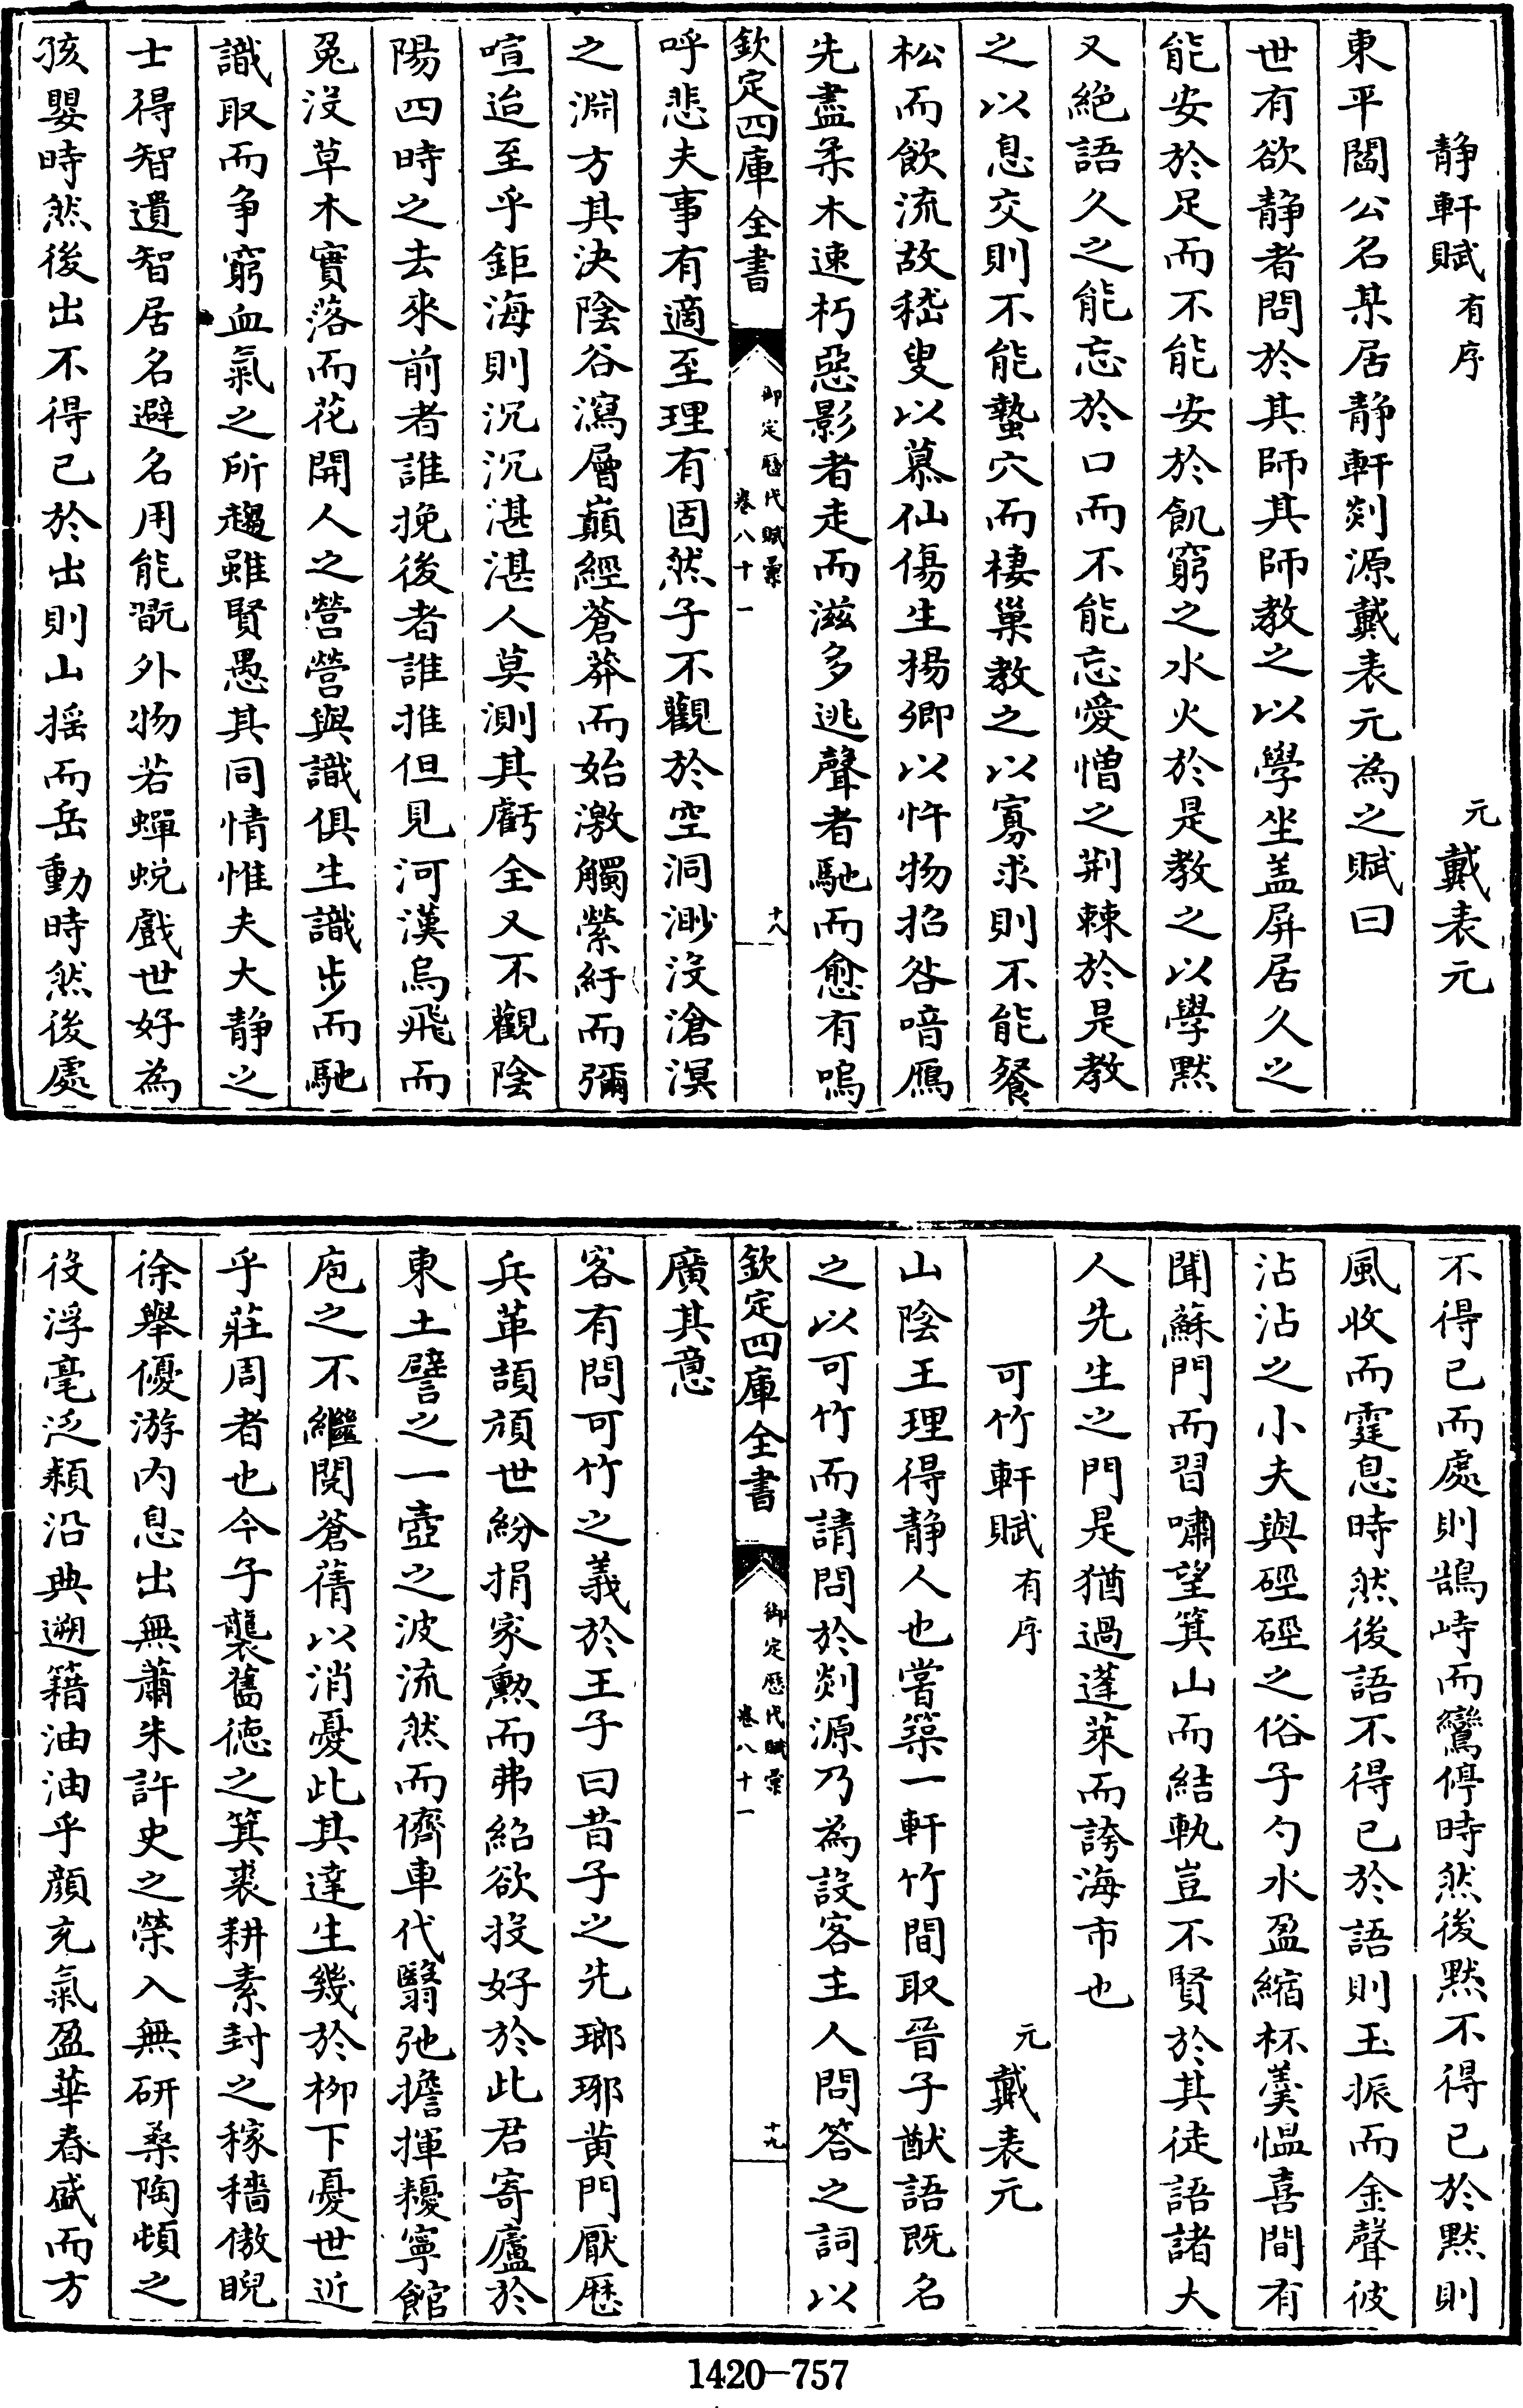 静軒賦有序 元戴表元
東平閻公名某居静軒剡源戴表元為之賦曰
世有欲静者問於其師其師教之以學坐盖屏居久之
能安於足而不能安於飢窮之水火於是教之以學黙
又絶語久之能忘於口而不能忘愛憎之荆棘於是教
之以息交則不能蟄穴而棲巢教之以寡求則不能餐
松而飲流故嵇叟以慕仙傷生揚卿以忤物招咎喑鴈
先盡柔木速朽惡影者走而滋多逃聲者馳而愈有嗚
欽定四庫全書 御定歴代賦彙 卷八十一 十八
呼悲夫事有適至理有固然子不觀於空洞渺沒滄溟
之淵方其決陰谷瀉層巔經蒼莽而始激觸縈紆而彌
喧迨至乎鉅海則沉沉湛湛人莫測其虧全又不觀陰
陽四時之去來前者誰挽後者誰推但見河漢烏飛而
兔沒草木實落而花開人之營營與識俱生識步而馳
識取而争窮血氣之所趨雖賢愚其同情惟夫大静之
士得智遺智居名避名用能翫外物若蟬蜕戲世好為
孩嬰時然後出不得已於出則山揺而岳動時然後處
不得已而處則鵠峙而鸞停時然後黙不得已於黙則
風收而霆息時然後語不得已於語則玉振而金聲彼
沾沾之小夫與硜硜之俗子勺水盈縮杯羮愠喜間有
聞蘇門而習嘯望箕山而結執豈不賢於其徒語諸大
人先生之門是猶過蓬萊而誇海市也
可竹軒賦有序 元戴表元
山陰王理得静人也嘗築一軒竹間取晉子猷語既名
之以可竹而請問於剡源乃為設客主人問答之詞以
欽定四庫全書 御定歴代賦彙 卷八十一 十九
廣其意
客有問可竹之義於王子曰昔子之先瑯琊黄門厭歴
兵革頡頏世紛捐家勲而弗紹欲投好於此君寄廬於
東土譬之一壺之波流然而儕車代翳弛擔揮耰寧館
庖之不繼閲蒼蒨以消憂此其達生幾於柳下憂世近
乎莊周者也今子襲舊徳之箕裘耕素封之稼穡傲睨
徐舉優游内息出無蕭朱許史之榮入無研桑陶頓之
役浮毫泛纇沿典遡籍油油乎顔充氣盈華春盛而方
1420-757